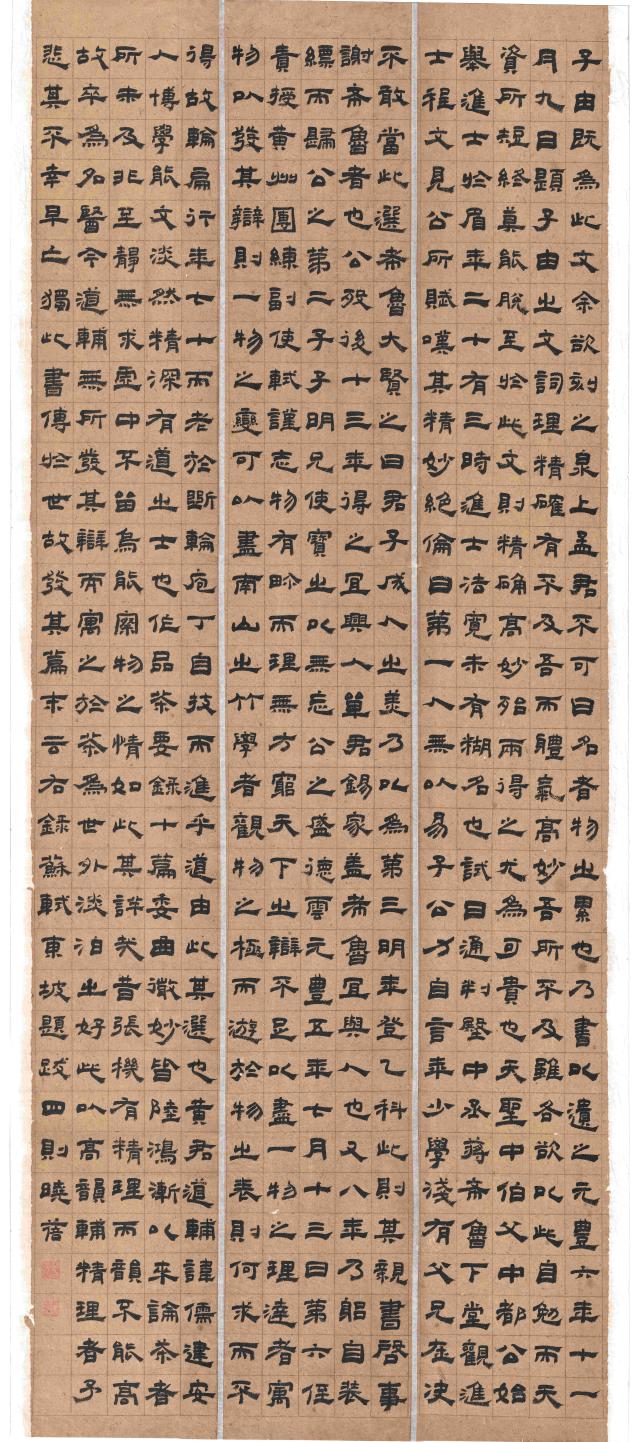 子由既為此文余欲刻之泉上孟君不可曰名者物之累也乃書以遺之元豐六年十一
月九日題子由之文詞理精確有不及吾而體氣高妙吾所不及雖各欲以此自勉而天
資所短終莫能脫至於此文則精确高妙殆兩得之尤為可貴也天聖中伯父中都公始
舉進士於眉年二十有三時進士法寬未有糊名也試日通判殿中丞蔣希魯下堂觀進
士程文見公所賦嘆其精妙絕倫曰第一人無以易子公力自言年少學淺有父兄在决
不敢當此選希魯大賢之曰君子成人之美乃以為第三明年登乙科此則其親書啓事
謝希魯者也公歿後十三年得之宜興人單君錫家蓋希魯宜興人也又八年乃躬自裝
縹而歸公之第二子子明兄使寶之以無忘公之盛德雲元豐五年七月十三日第六侄
責授黃州團練副使軾謹志物有畛而理無方窮天下之辯不足以盡一物之理達者寓
物以發其辯則一物之變可以盡南山之竹學者觀物之極而遊於物之表則何求而不
得故輪扁行年七十而老於斲輪庖丁自技而進乎道由此其選也黃君道輔諱儒建安
人博學能文淡然精深有道之士也作品茶要錄十篇委曲微妙皆陸鴻漸以來論茶者
所未及非至靜無求虛中不留烏能察物之情如此其詳哉昔張機有精理而韻不能高
故卒為名醫今道輔無所發其辯而寓之於茶為世外淡泊之好此以高韻輔精理者予
悲其不幸早亡獨此書傳於世故發其篇末云右錄蘇軾東坡題跋四則曉蓓